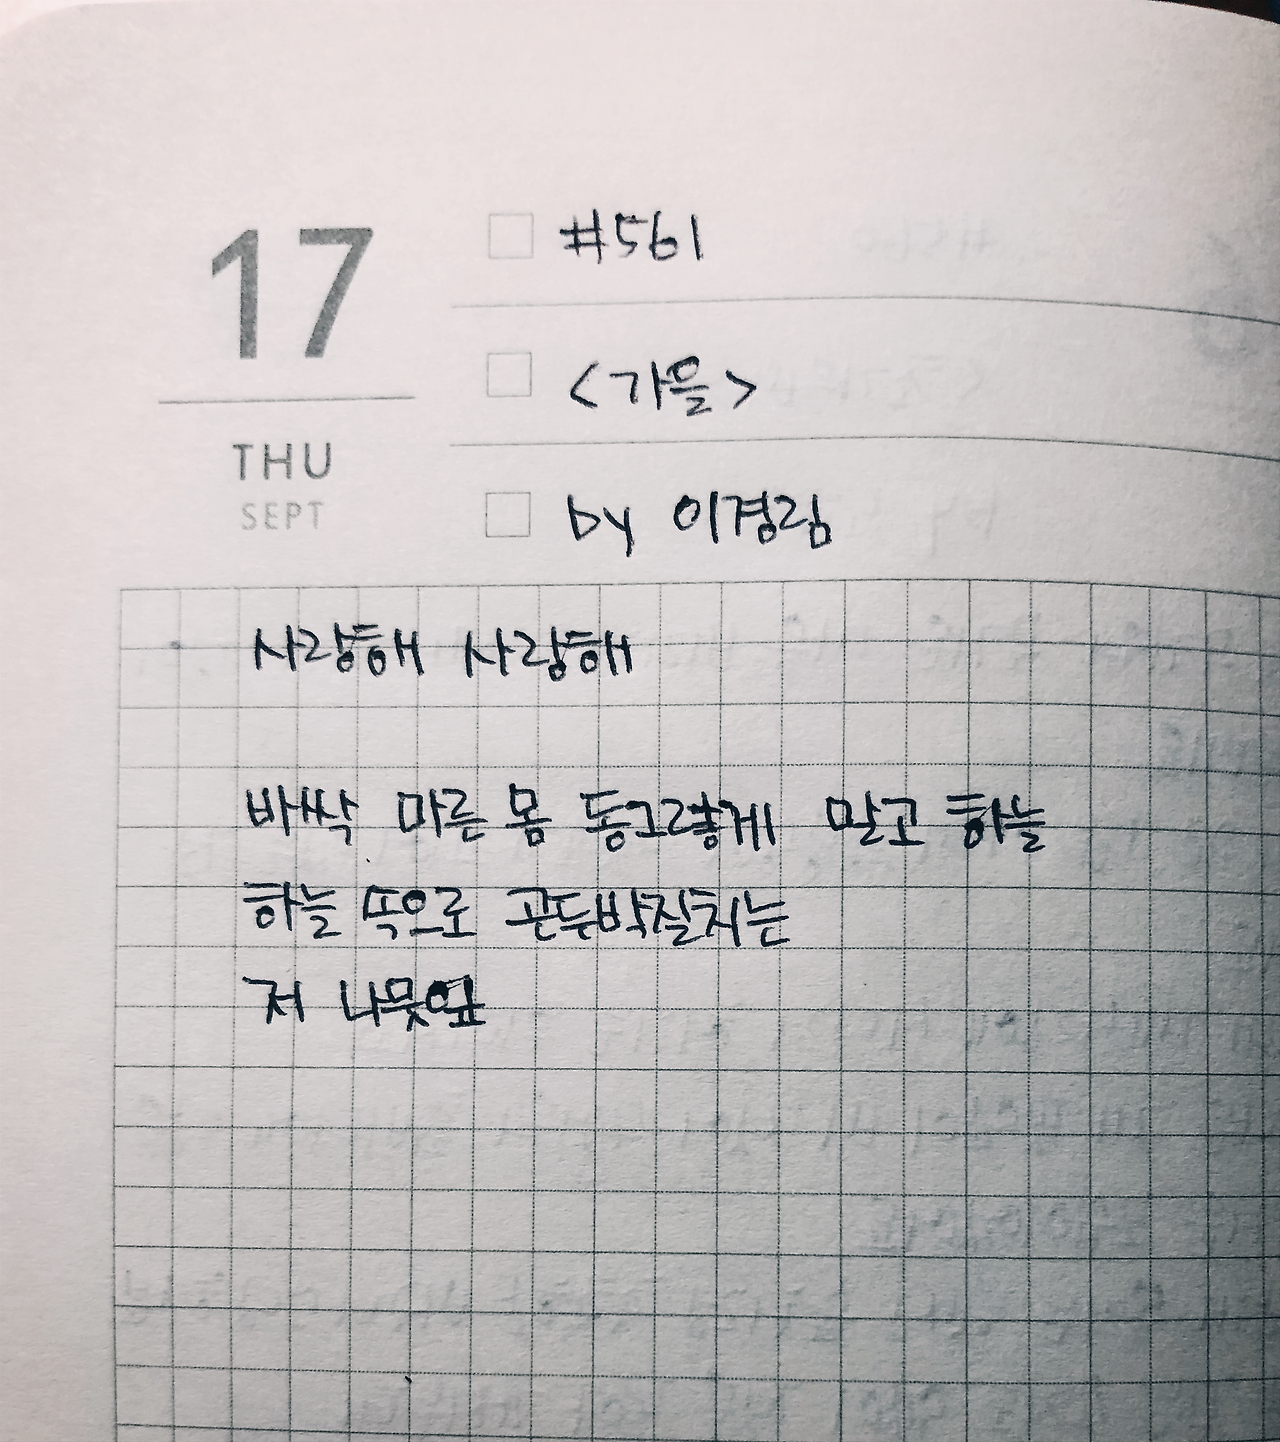 17
THU
SEPT
#561
<가을>
by 이경림
사랑해 사랑해
바싹 마른 몸 동그랗게 말고 하늘
하늘 쏙으로 곤두박질치는
저 나뭇잎